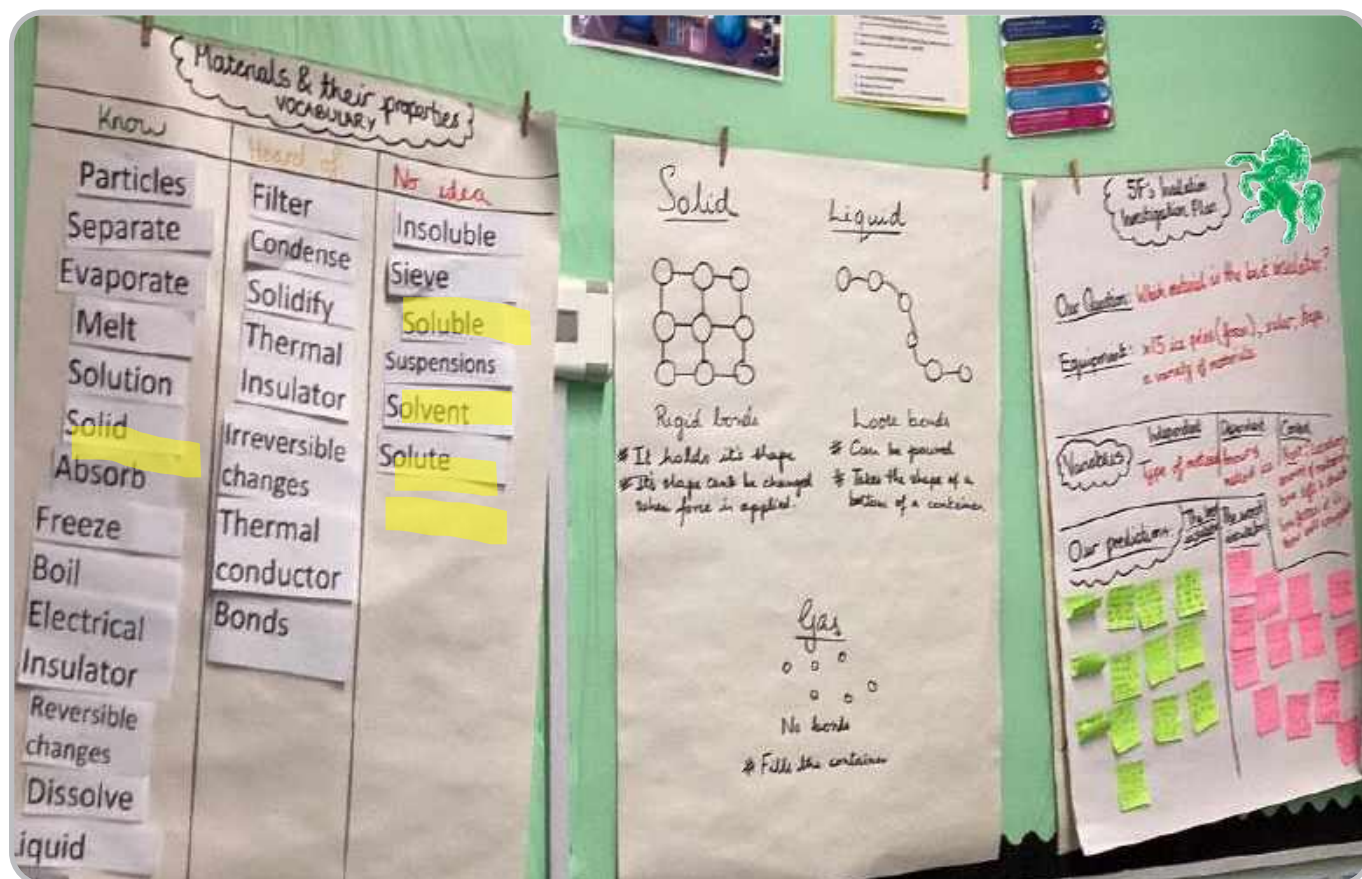 Materials & their properties
VOCABULARY
Know
Particles
Separate
Evaporate
Melt
Solution
Solid
Absorb
Freeze
Boil
Electrical
Insulator
Reversible
changes
Dissolve
iquid
Heard of
Filter
Condense
Solidify
Thermal
Insulator
Irreversible
changes
Thermal
conductor
Bonds
No idea
Insoluble
Sieve
Soluble
Suspensions
Solvent
Solute
Solid
Rigid bonds
* It holds it's shape
* It's shape can't be changed
when force is applied.
Liquid
Loose bonds
* Can be poured
* Takes the shape of a
bottom of a container
Gas
No bonds
* Fills the container
5F's Insulation
Investigation Plan
Our Question: Which material is the best insulator?
Equipment:
a variety of materials
Variables
Independent
Type of material
Dependent
Control
Our predictions
The best
insulator
The worst
insulator